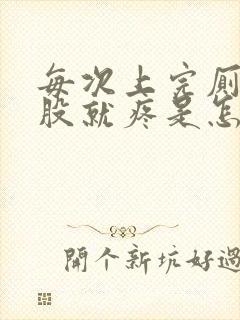 每次上完厕
股就疼是怎
開个新坑好過